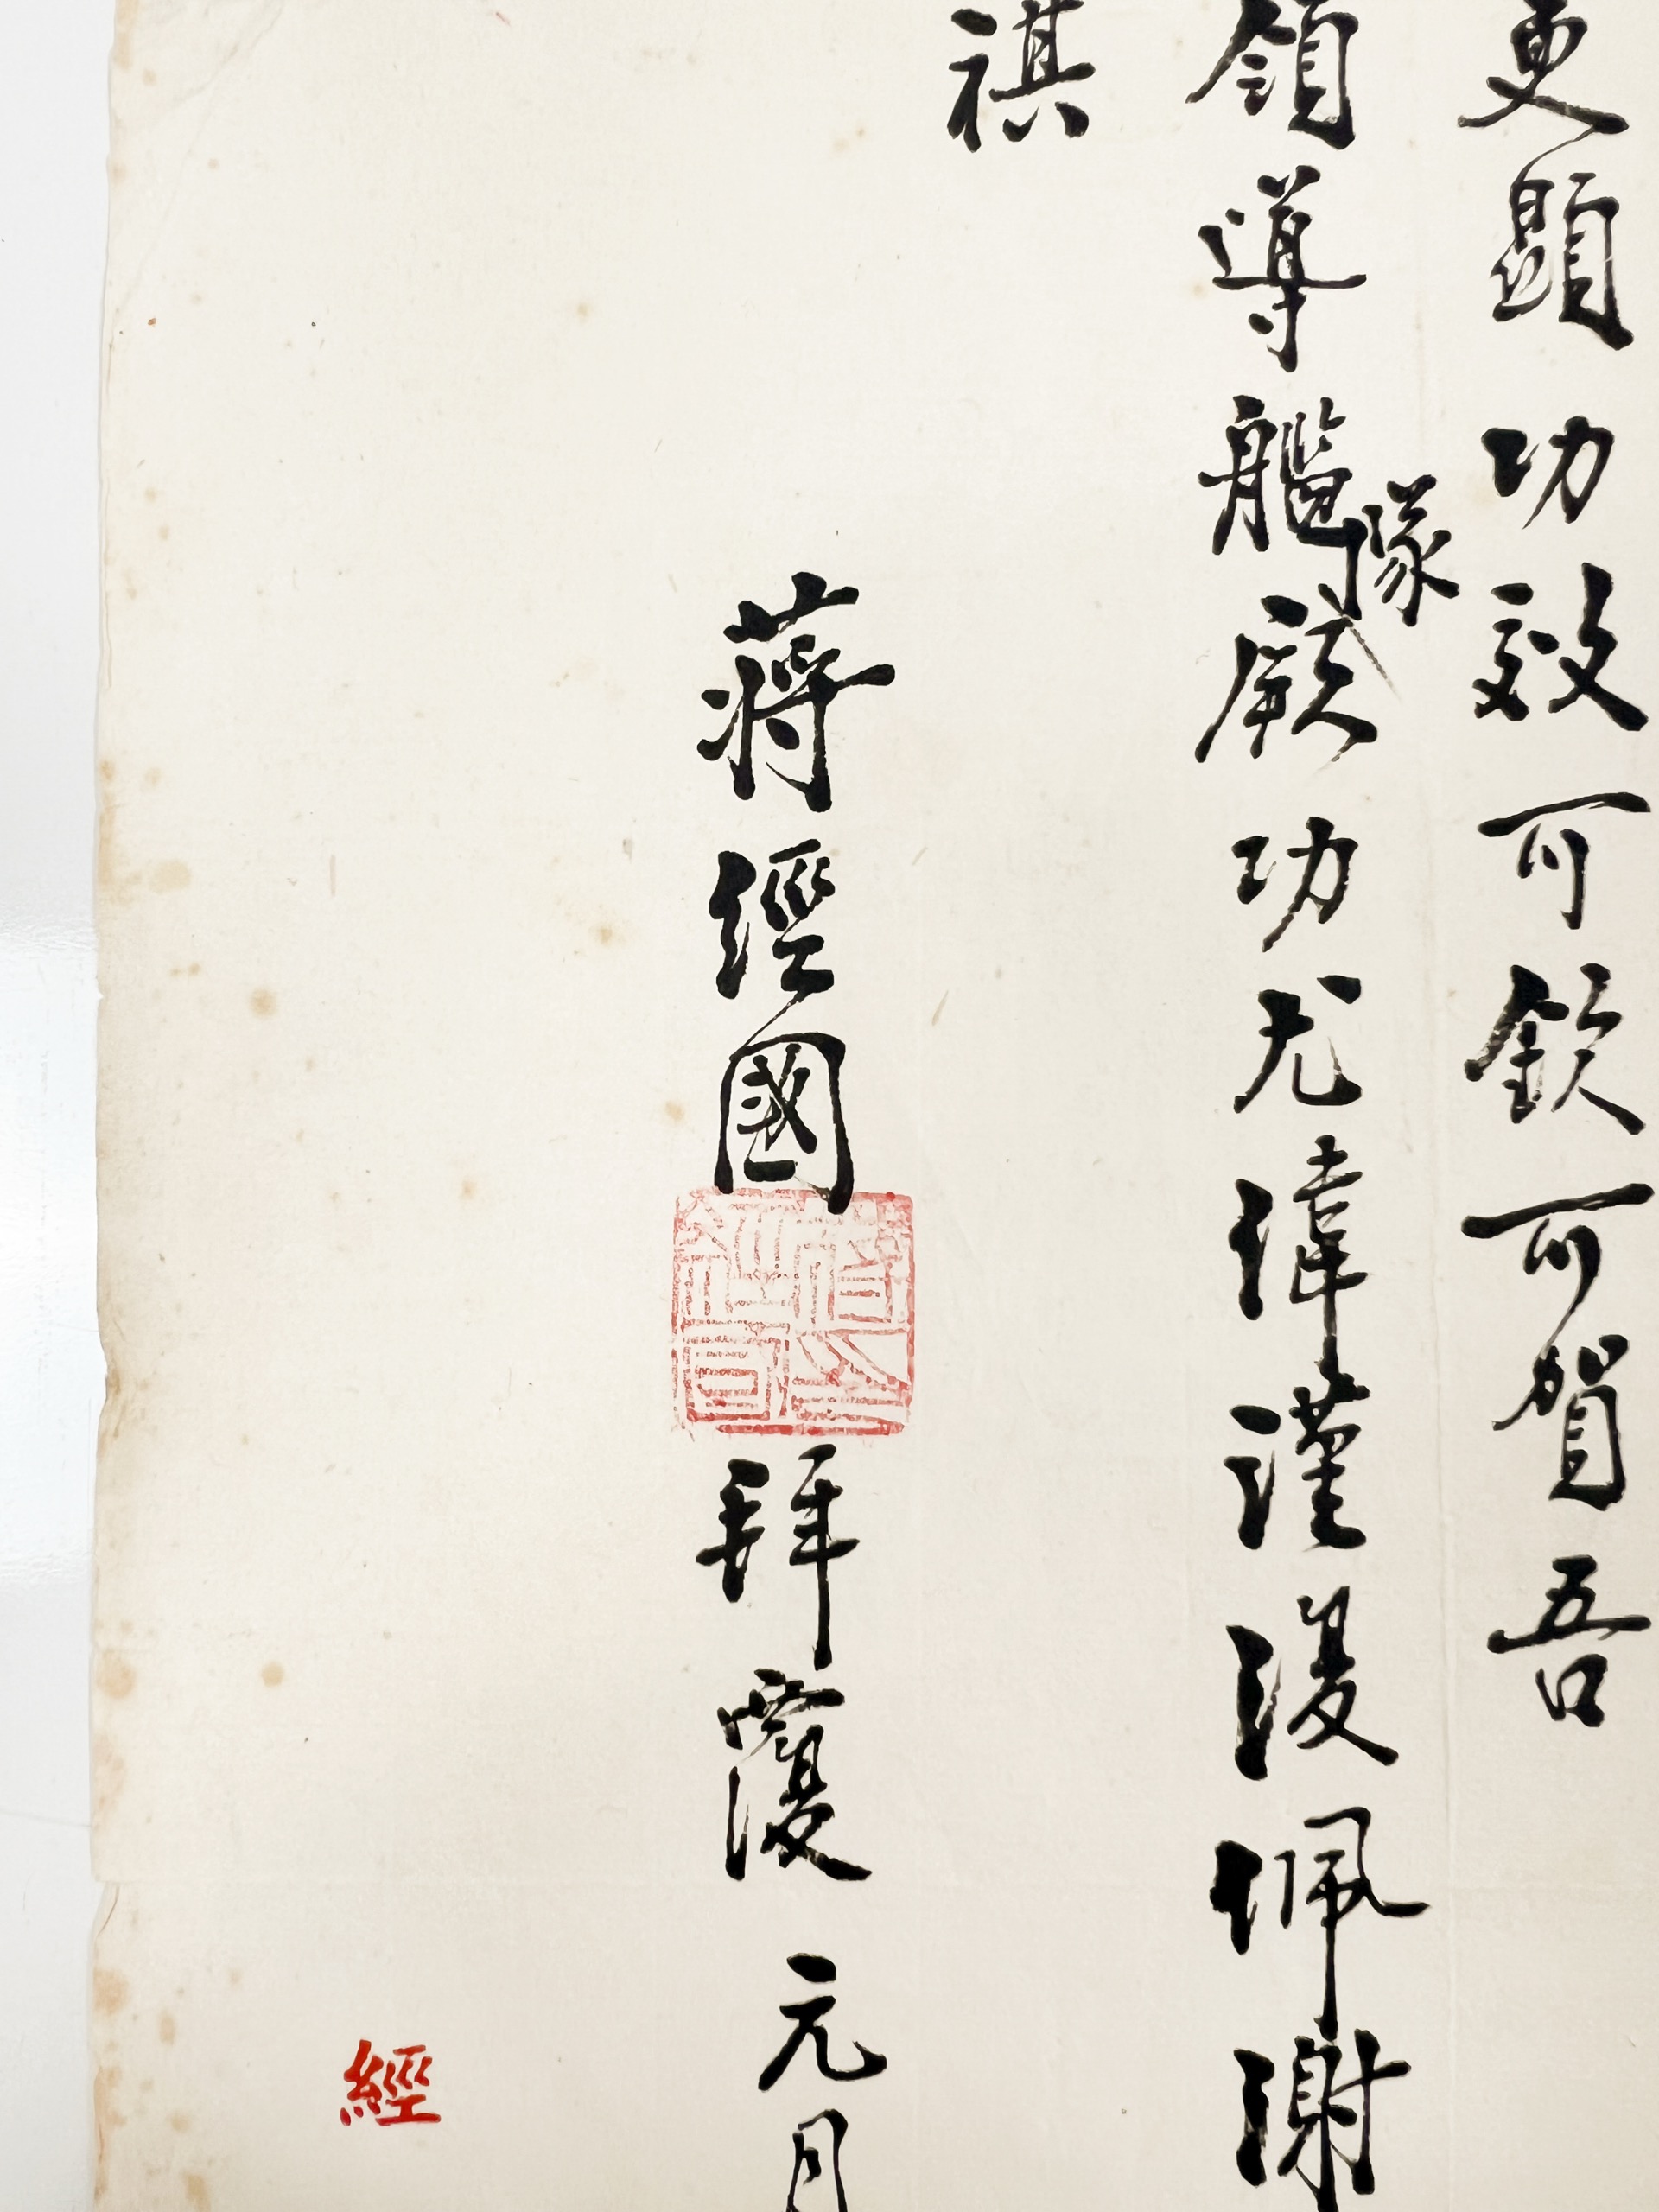 更顯功效可欽可賀吾
領導艦隊厥功尤偉謹復佩謝
祺
蔣經國拜覆元月
經